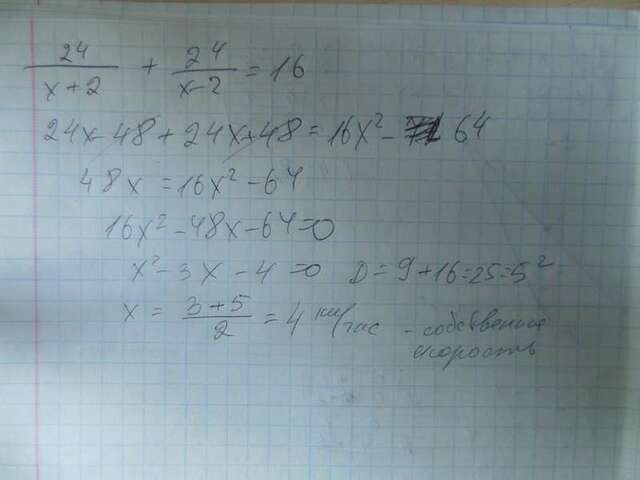 24/(x+2) + 24/(x-2) = 16
24x-48+24x+48 = 16x²- 64
48x = 16x²-64
16x²-48x-64=0
x²-3x-4=0 D=9+16=25=5²
x = (3+5)/2 = 4 км/час - собственная
скорость